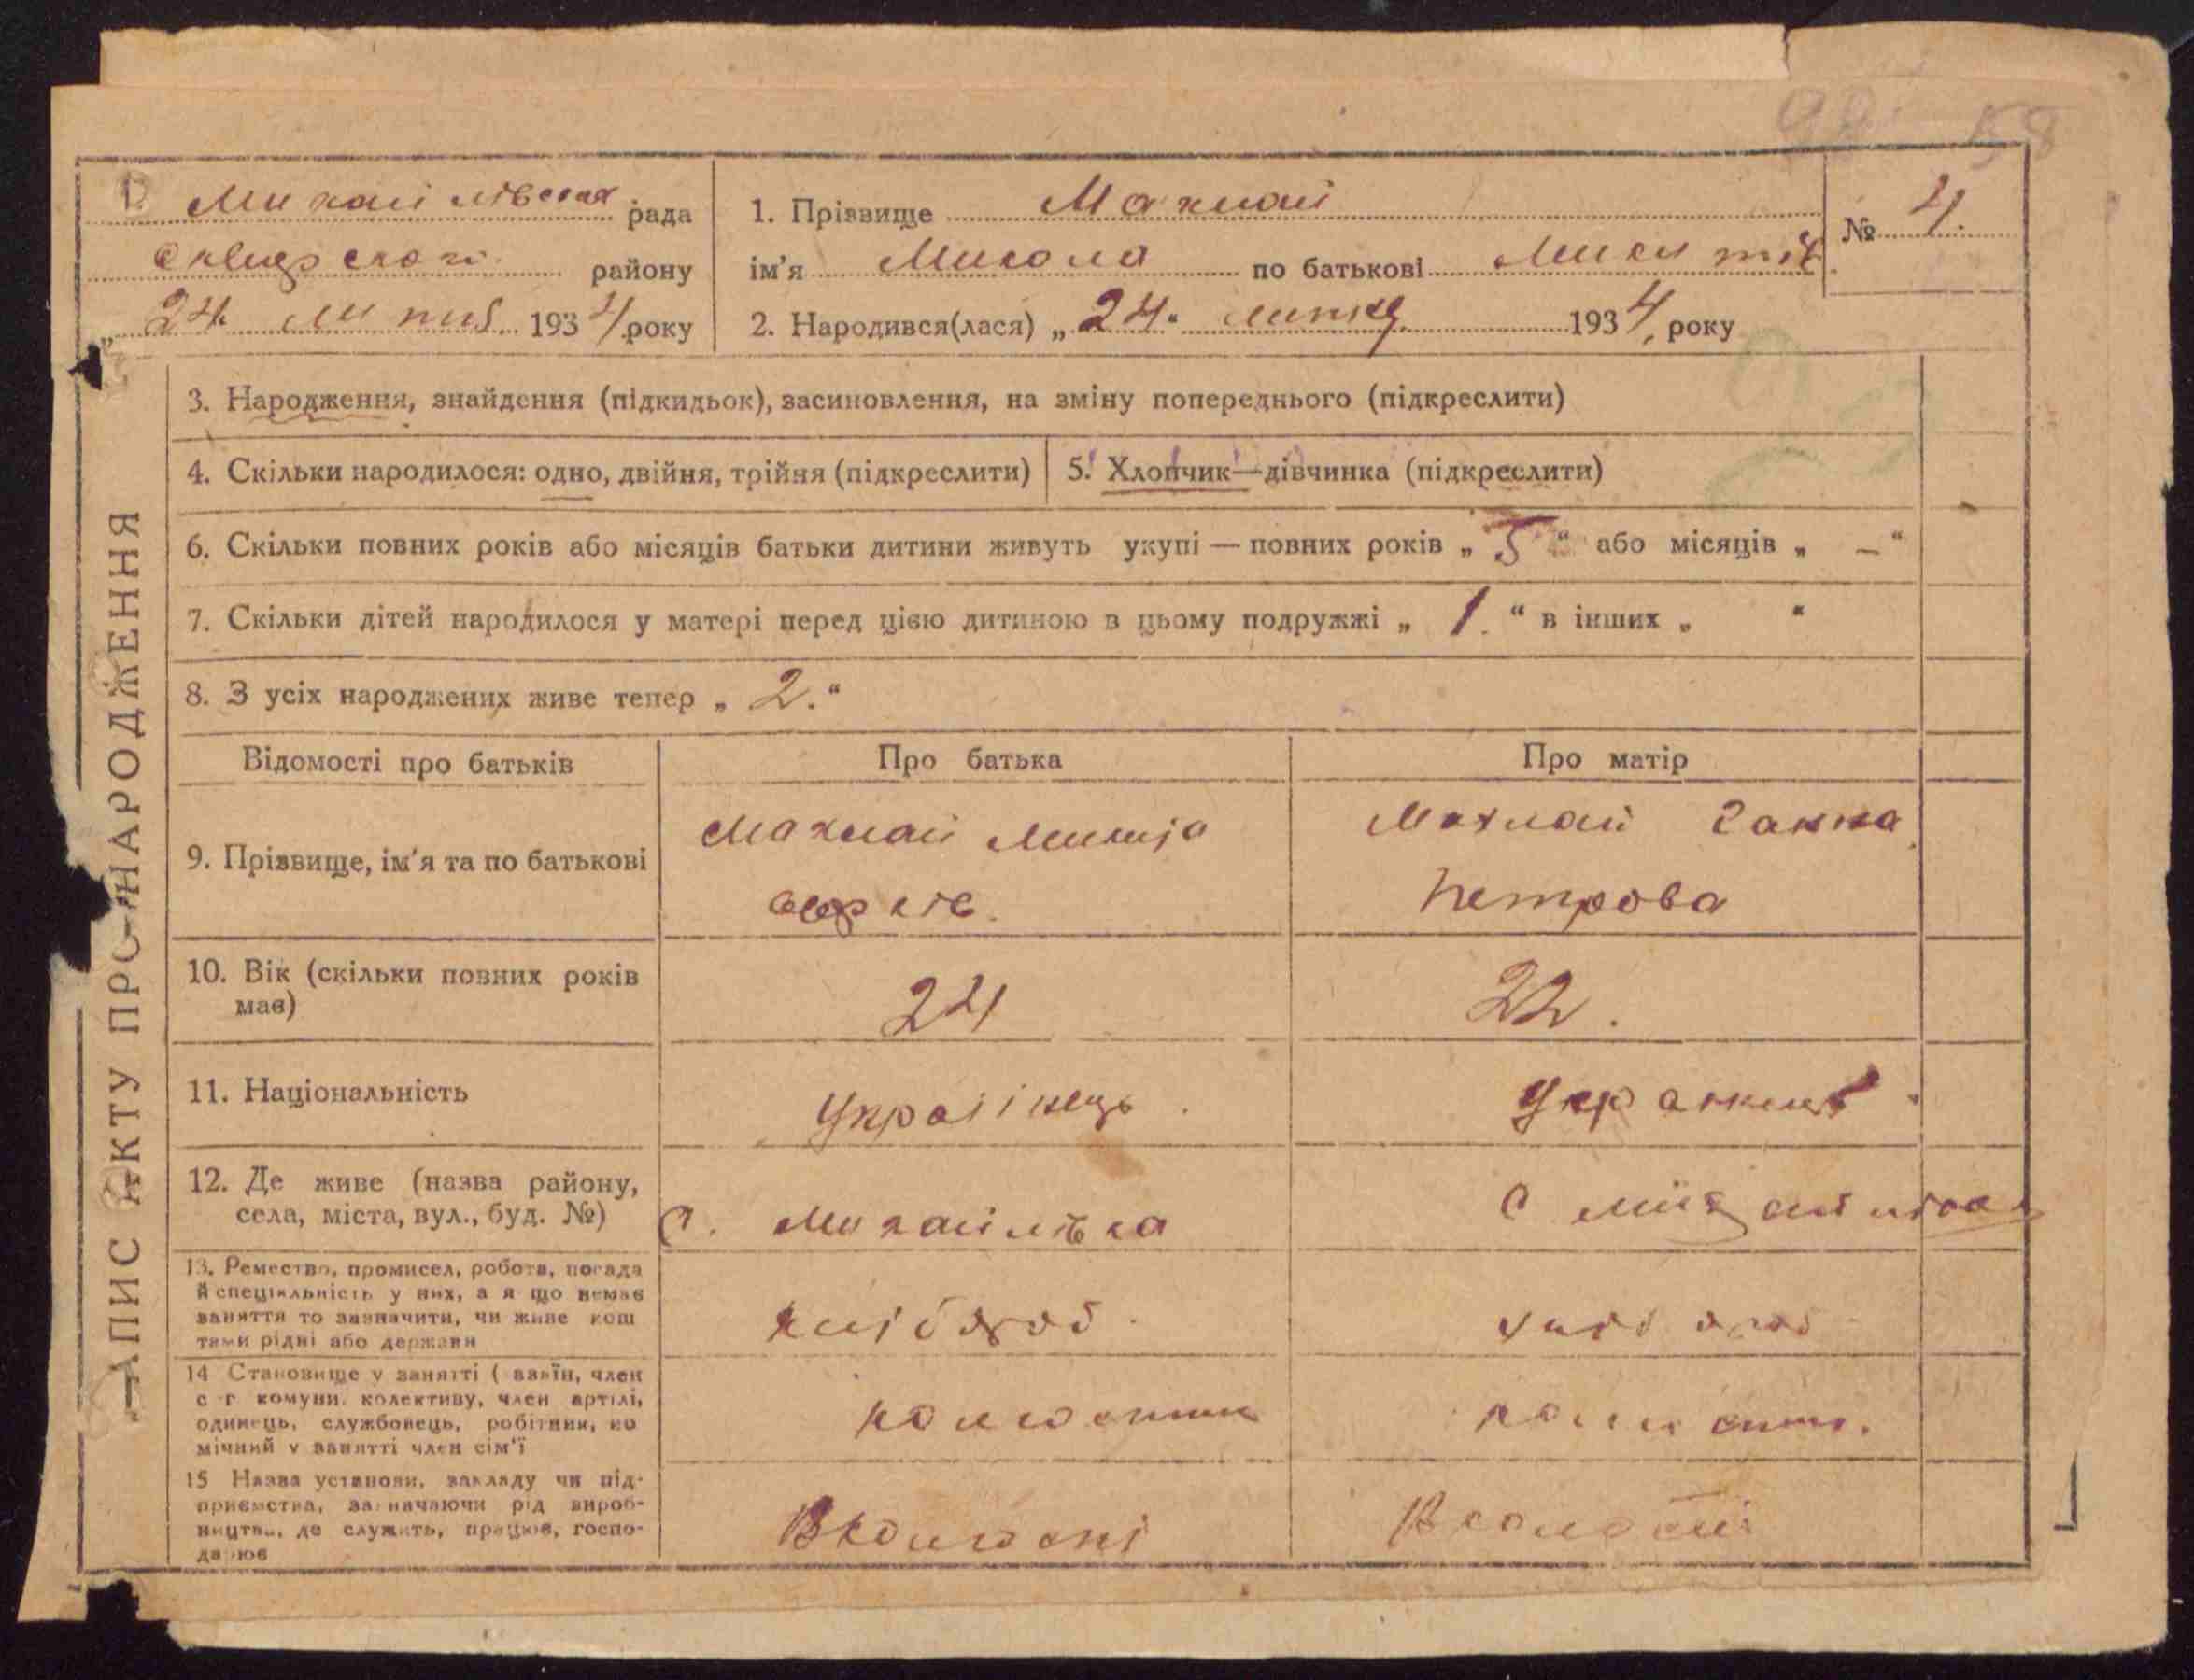 58
Михайлівська рада
Сквирського району
„ 24 " липня 1934 року
1. Прізвище Махлай
ім'я Микола по батькові Микитів
2. Народився(лася) „ 24 " липня 1934 року
№ 4.
ЗАПИС АКТУ ПРО НАРОДЖЕННЯ
3. Народження, знайдення (підкидьок), засиновлення, на зміну попереднього (підкреслити)
4. Скільки народилося: одно, двійня, трійня (підкреслити)
5. Хлопчик—дівчинка (підкреслити)
6. Скільки повних років або місяців батьки дитини живуть укупі — повних років „ 5 " або місяців „ – "
7. Скільки дітей народилося у матері перед цією дитиною в цьому подружжі „ 1. " в інших „ "
8. З усіх народжених живе тепер „ 2. "
Відомості про батьків
Про батька
Про матір
9. Прізвище, ім'я та по батькові
Махлай
Махлай Ганна
Петрова
10. Вік (скільки повних років
має)
24
22.
11. Національність
Українець.
12. Де живе (назва району,
села, міста, вул., буд. №)
с. Михайлівка
с
13. Ремество, промисел, робота, посада
й спеціяльність у них, а я що немає
заняття то зазначити, чи живе кош
тами рідні або держави
хлібороб.
хлібороб
14 Становище у занятті ( азяїн, член
с г комуни. колективу, член артілі,
одинець, службовець, робітник, по
мічний у занятті член сім'ї
колгоспник
колгоспн.
15 Назва установи, закладу чи під-
приємства, зазначаючи рід вироб-
ництва, де служить, працює, госпо-
дарює
В колгоспі
В колгоспі